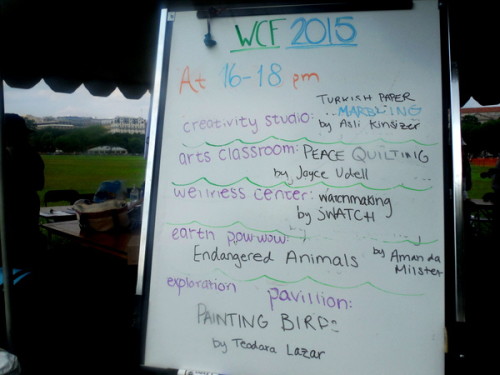 WCF 2015
At 16-18 pm
TURKISH PAPER
creativity studio: MARBLING
by Asli Kinsizer
arts classroom: PEACE QUILTING
by Joyce Udell
wellness center: watchmaking
by SWATCH
earth powwow:
Endangered Animals by Amanda
Milster
exploration pavillion:
PAINTING BIRDS
by Teodara Lazar